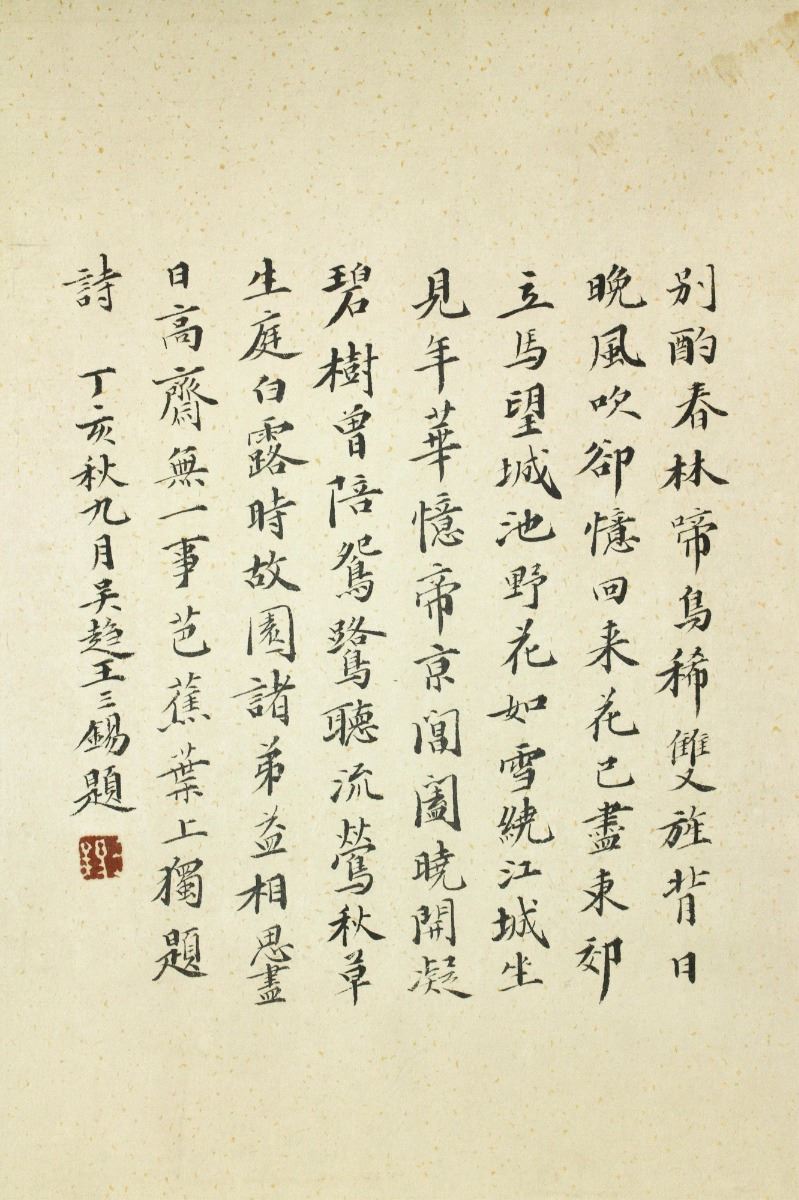 別酌春林啼鳥稀雙旌背日
晚風吹卻憶回来花已盡東郊
立馬望城池野花如雪繞江城坐
見年華憶帝京閶闔曉開凝
碧樹曾陪鴛鷺聽流鶯秋草
生庭白露時故園諸弟益相思盡
日高齋無一事芭蕉葉上獨題
詩 丁亥秋九月吴趋王三錫題